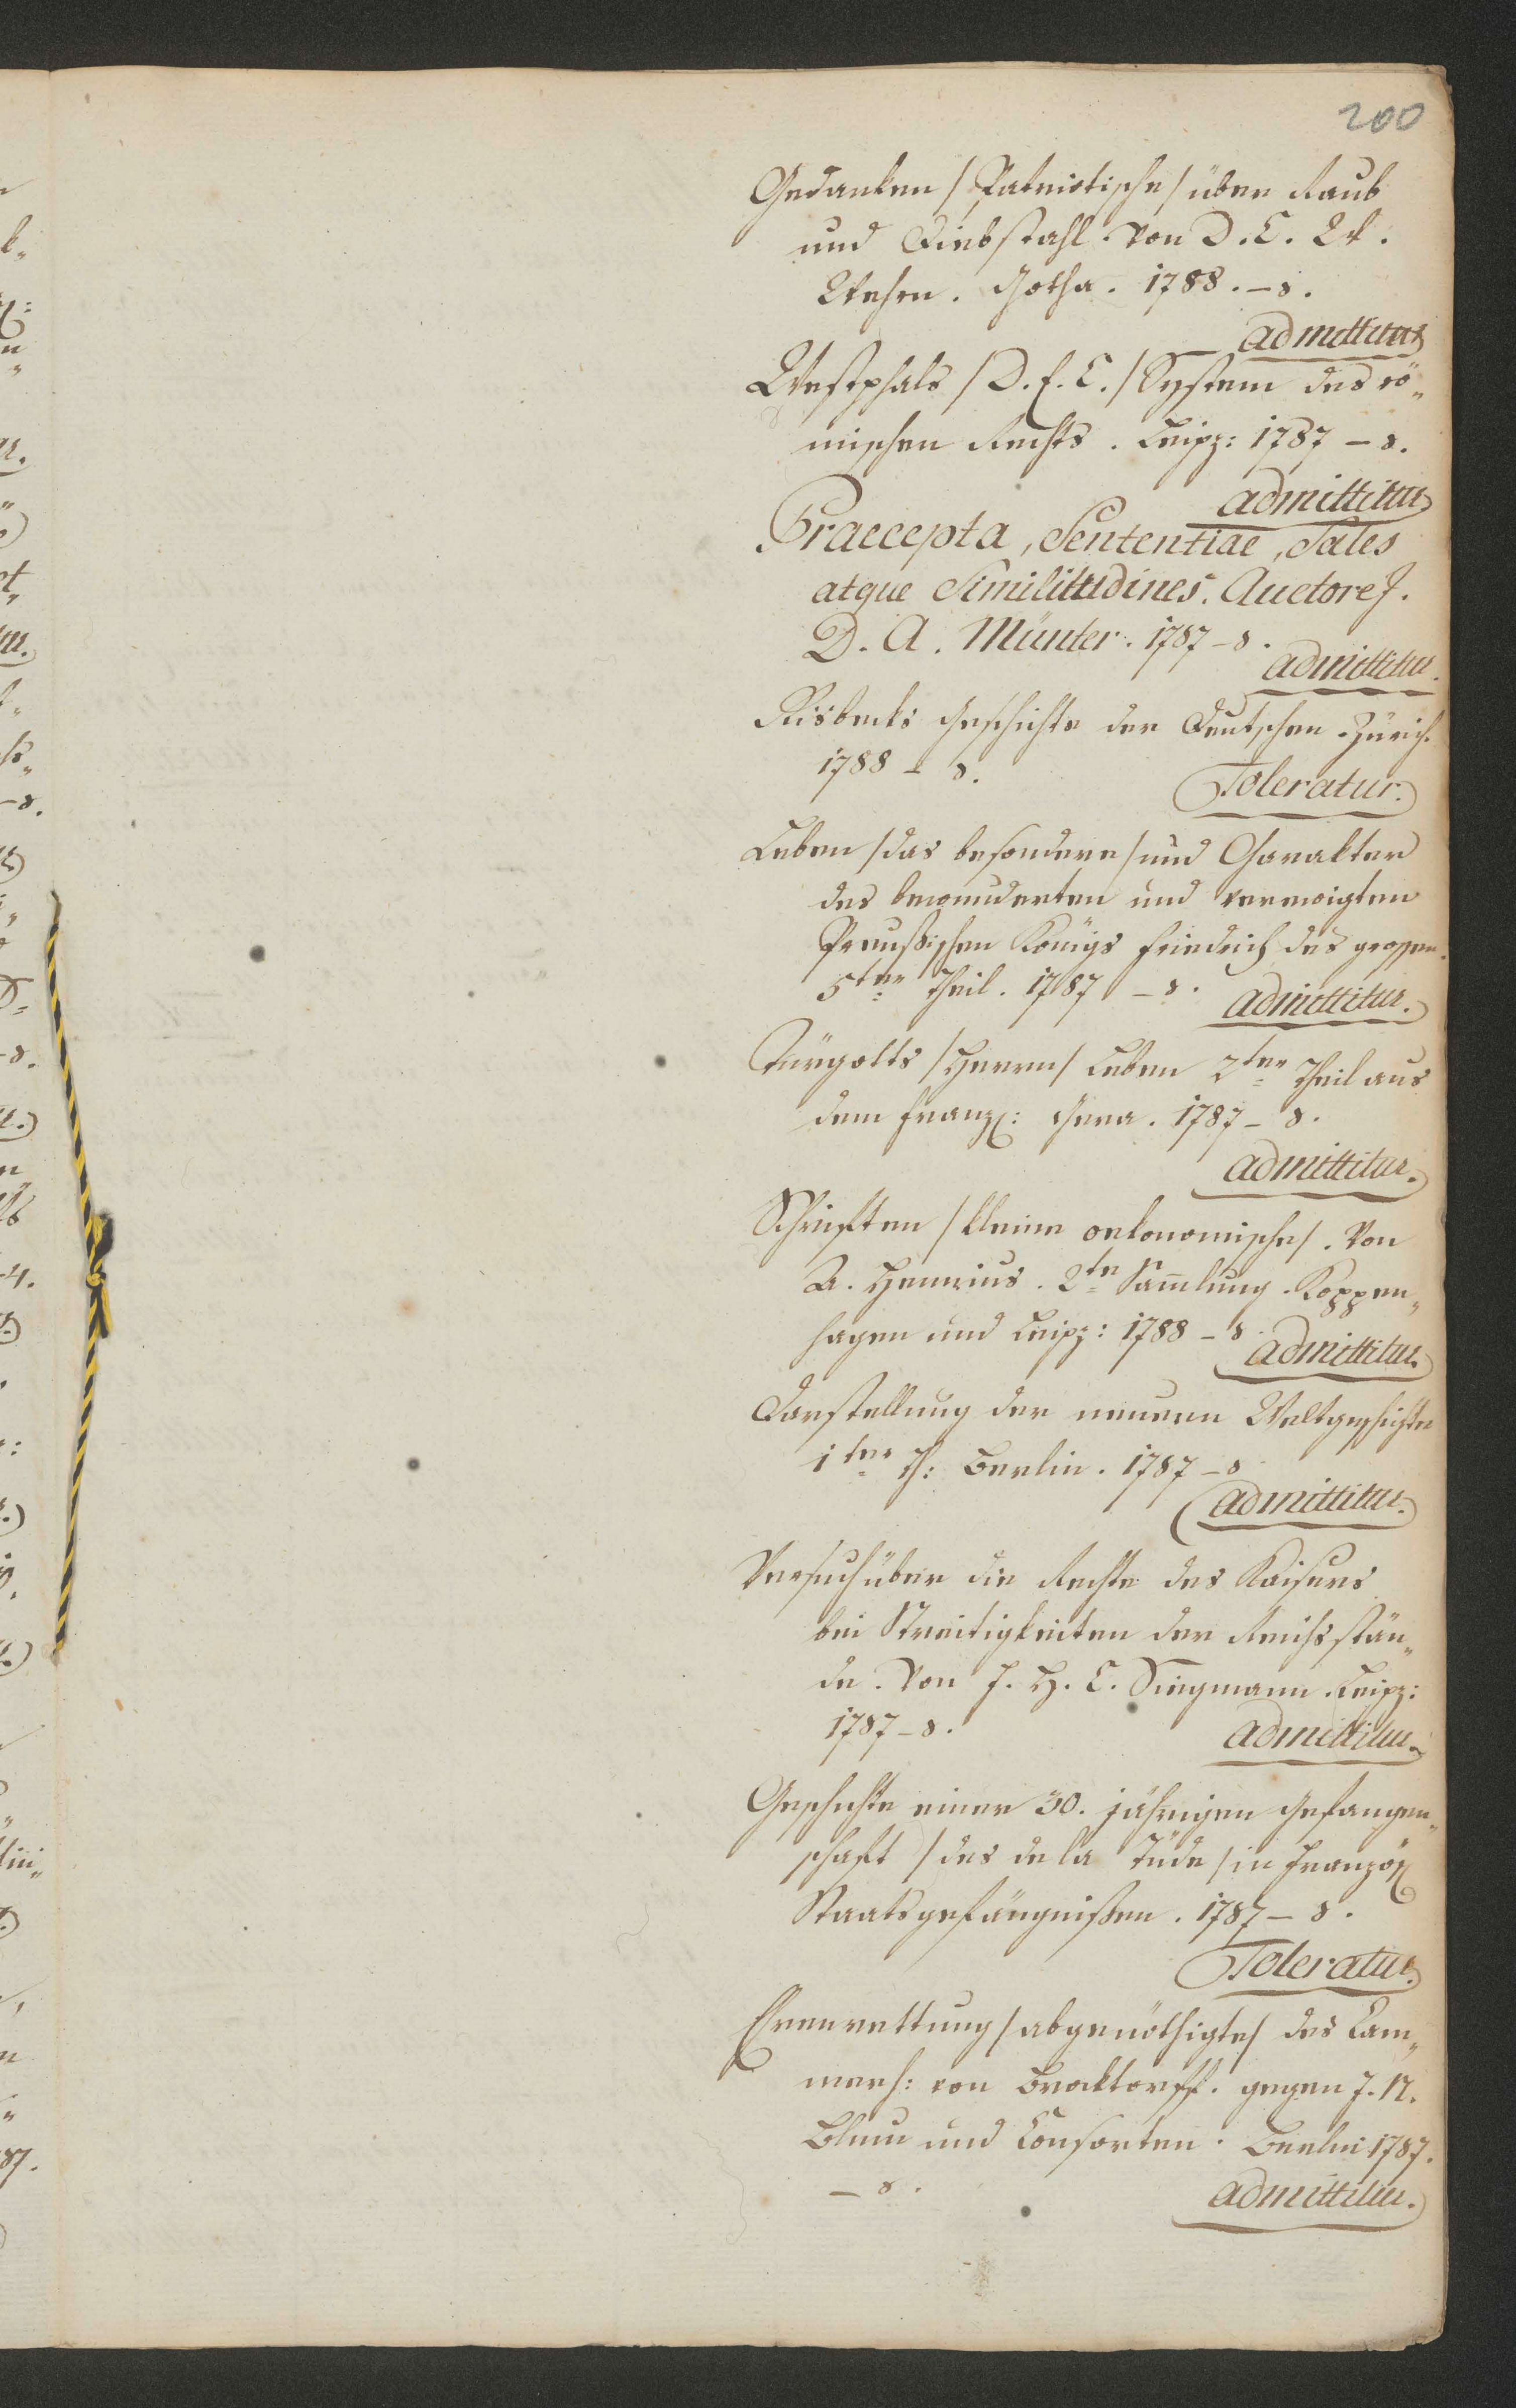 200
Gedanken /Patriotische/ über Raub
und Diebstahl. Von D. C. W.
Wehrn. Gotha. 1788. – 8.
admittitur
Westphals /D. E. C./ System des rö„
mischen Rechts. Leipz: 1787 – 8.
admittitur
Praecepta, Sententiae, Sales
atque Similitudines. Auctore J.
D. A. Münter. 1787 – 8.
admittitur.
Risbecks Geschichte der Deutschen. Zürich.
1788 – 8.
Toleratur.
Leben /das besondere/ und Charakter
des bewunderten und verewigten
Preußischen Königs Friedrich des grossen.
5ter Theil. 1787 – 8.
admittitur.
Türgotts /Herrn/ Leben 2ter Theil aus
dem Franz: Gera. 1787 – 8.
admittitur.
Schriften /kleine oekonomische/. Von
A. Hennius. 2te Samlung. Koppen„
hagen und Leipz: 1788 – 8.
admittitur.
Darstellung der neuern Weltgeschichte
1ter Th: Berlin. 1787 – 8.
admittitur.
Versuch über die Rechte des Kaisers
bei Streitigkeiten der Reichsstän„
de. Von J. H. C. Siegmann. Leipz:
1787 – 8.
admittitur.
Geschichte einer 30. jährigen Gefangen„
schaft /des de la Tüde/ in Französ
Staatsgefängnißen. 1787 – 8.
Toleratur.
Erenrettung /abgenöthigte/ des Cam„
merh: von Brocktorff. gegen J. N.
Blum und Consorten. Berlin 1787.
– 8.
admittitur.